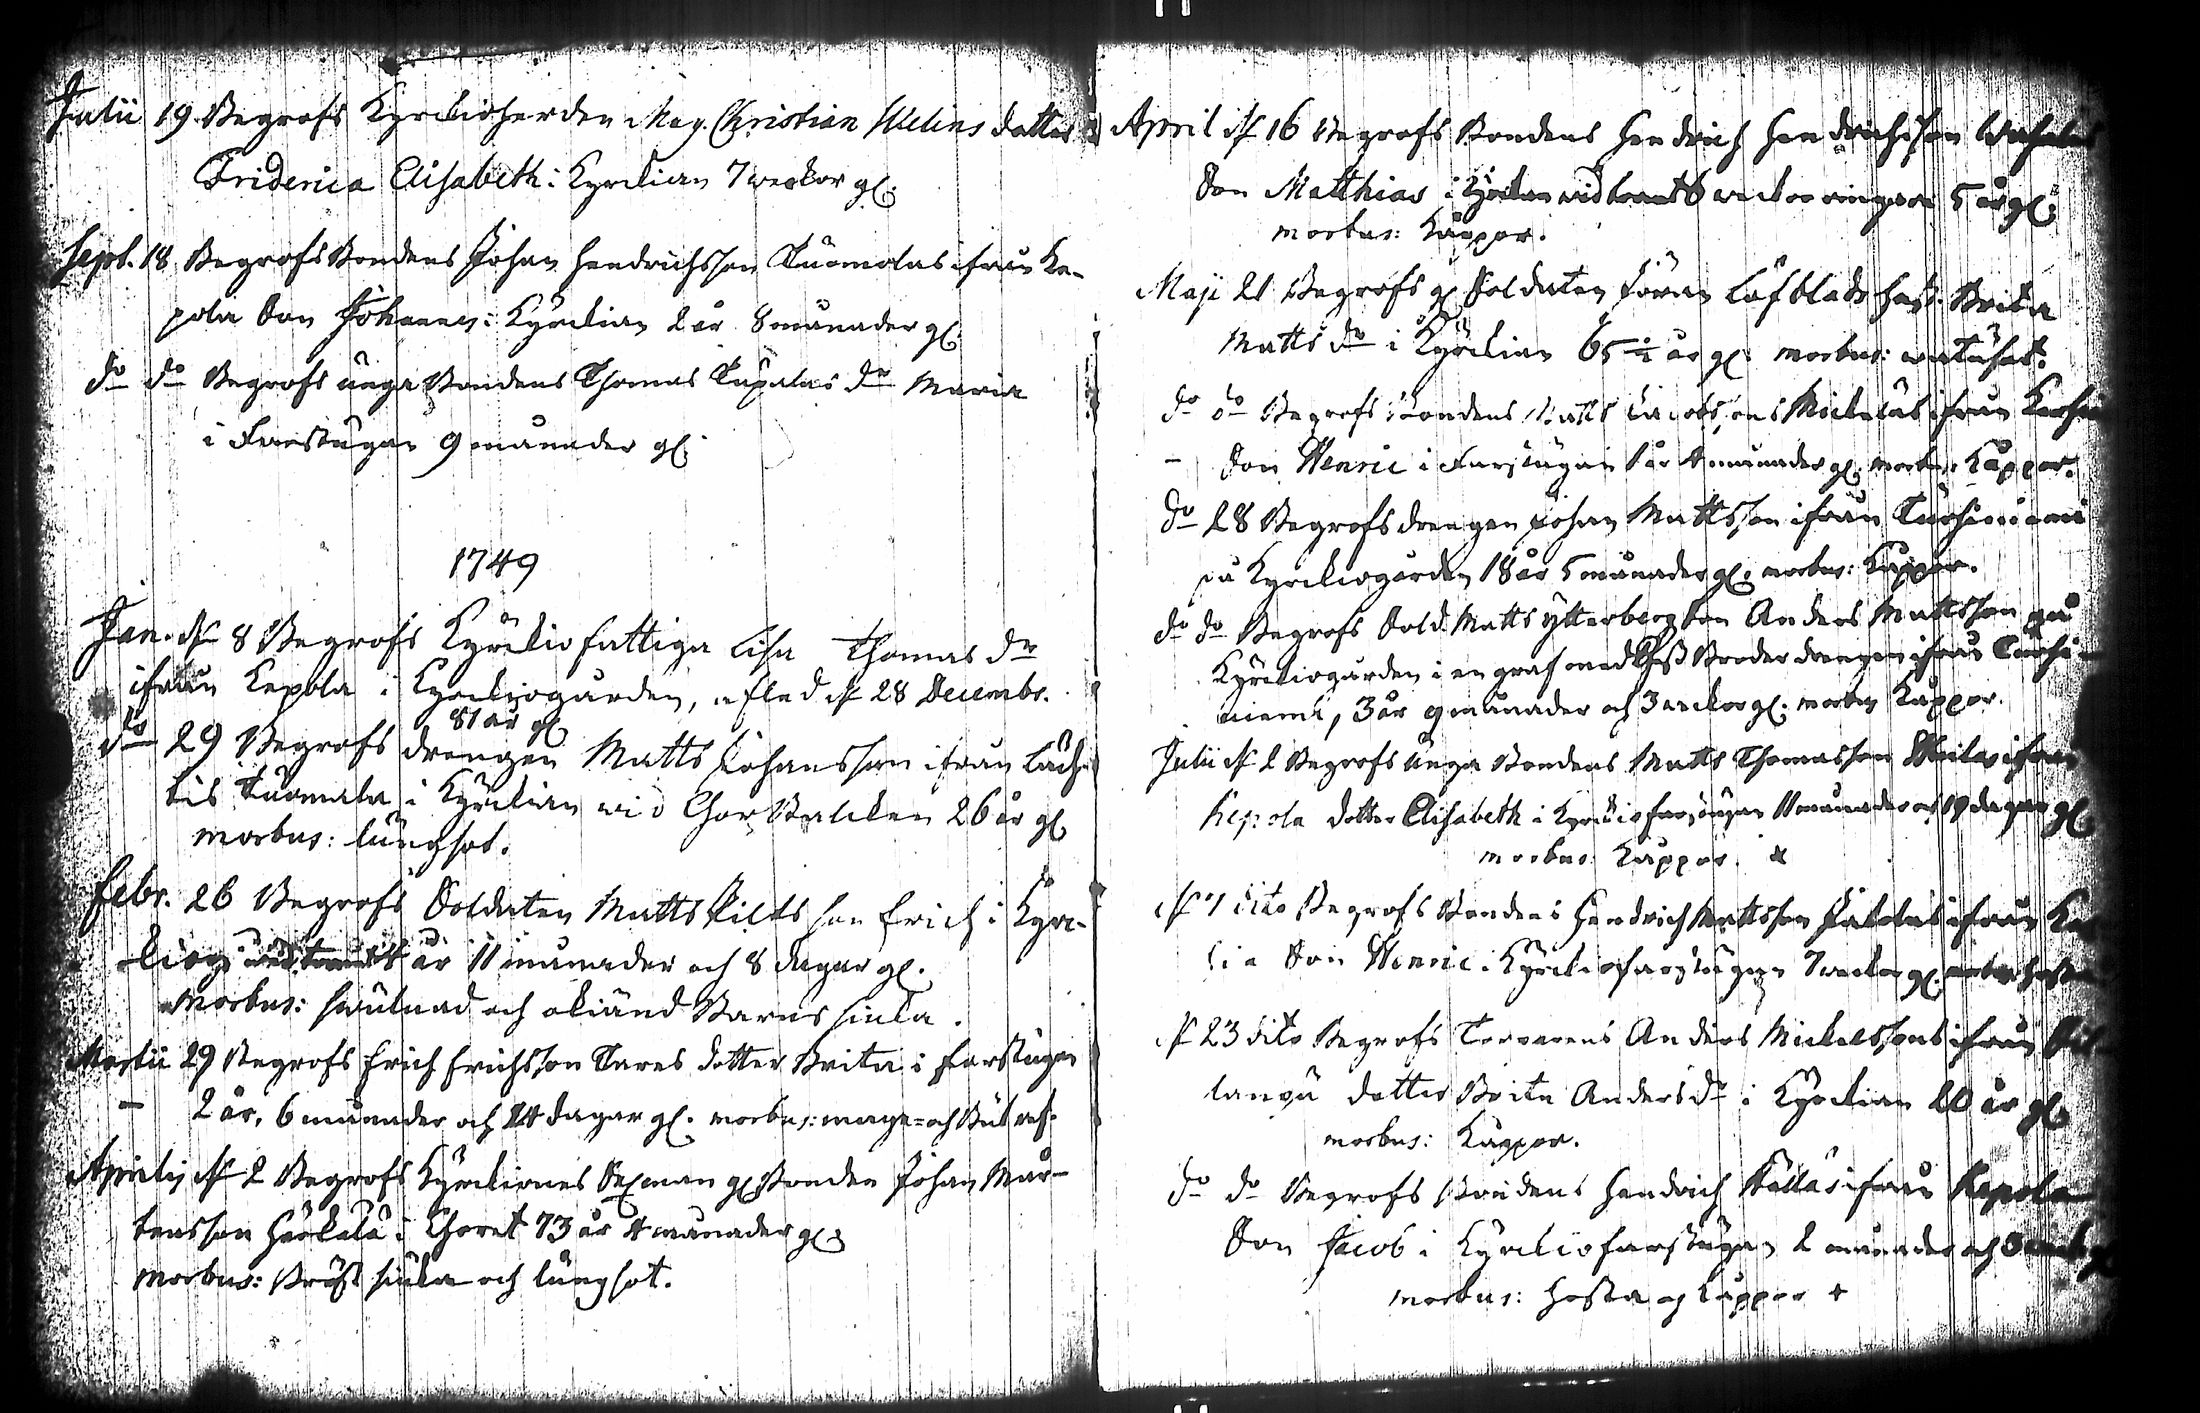 Julii 19 Begrofs Kyrckioherden Mag. Christian Welins dotter
Friderica Elisabeth i Kyrckian 7 weckor gl.
Sept. 18 Begrofs Bondens Johan Hendrichsson Tuomolas ifrån Ke-
pola Son Johannes i Kyrckian 2 år 8 månader gl.
do do Begrofs unga Bondens Thomas Tupalas dr Maria
i Farstugan 9 månader gl.
1749
Jan. d. 8 Begrofs Kyrckio fattiga Lisa Thomas dr
ifrån Kepola i Kyrckiogården, afled d. 28 Decembr.
81 år gl
do 29 Begrofs drengen Matts Johansson ifrån
Tuomala i Kyrckian wid Chor Balcken 26 år gl
morbus: lungsot.
Febr. 26 Begrofs Soldaten Matts Pilts son Erich i Kyrc-
kian år 11 månader och 8 dagar gl.
Morbus: swulnad och okiänd Barns siuka.
Martii 29 Begrofs Erich Erichsson Tares dotter Brita i farstugan
– 2 år, 6 månader och 24 dagar gl. morbus: mage= och
Aprilis d. 2 Begrofs Kyrckiones Sexman gl Bonden Johan Mår-
tensson Härkälä i Choret 73 år 4 månader gl.
Morbus: Bröst siuka och lungsot.
April d. 16 Begrofs Bondens Hendrich Hendrichsson
Son Matthias i Kyrckan 5 år gl.
morbus: Kåppor.
Maji 21 Begrofs gl Soldaten Jöran Löfblads hust. Brita
Matts dr i Kyrckian 65 ½ år gl. morbus: watusot.
do do Begrofs Bondens Matts Jacobssons Mickeläs ifrån
– Son Henric i Farstugan 1 år 4 månader gl. morbus: Kåppor.
do 28 Begrofs drengen Johan Mattsson ifrån Tursiniemi
på Kyrckiogården 18 år 5 månader gl. morbus: Kåppor.
do do Begrofs Sold. Matts Ytterbergs son Anders Mattsson på
Kyrckiogården i en graf med Broder drengen ifrån Tursi-
niemi, 3 år 9 månader och 3 weckor gl. morbus Kåppor.
Julii d. 2 Begrofs unga Bondens Matts Thomasson ifrån
Kepola dotter Elisabeth i Kyrckiofarstugan 11 månader och 19 dagar gl
morbus: Kåppor.
d. 7 dito Begrofs Bondens Hendrich Mattsson ifrån
Son Henric i Kyrckiofarstugan 7 weckor gl.
d. 23 dito Begrofs Torparens Anders Mickelssons ifrån
dotter Brita Anders dr i Kyrckian 20 år gl
morbus: Kåppor.
do do Begrofs Bondens Hendrich ifrån Kepola
Son Jacob i Kyrckiofarstugan 2 månader och
morbus: Hosta och Kåppor